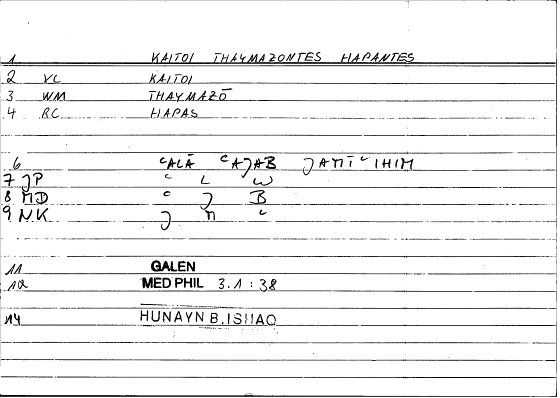 1 KAITOI THAYMAZONTES HAPANTES
2 VC KAITOI
3 WM THAYMAZŌ
4 RC HAPAS
6 ʿALĀ ʿAJAB JAMĪʿIHIM
7 JP ʿ L W
8 MD ʿ J B
9 NK J M ʿ
11 GALEN
12 MED PHIL 3.1:38
14 HUNAYN B.ISHAQ